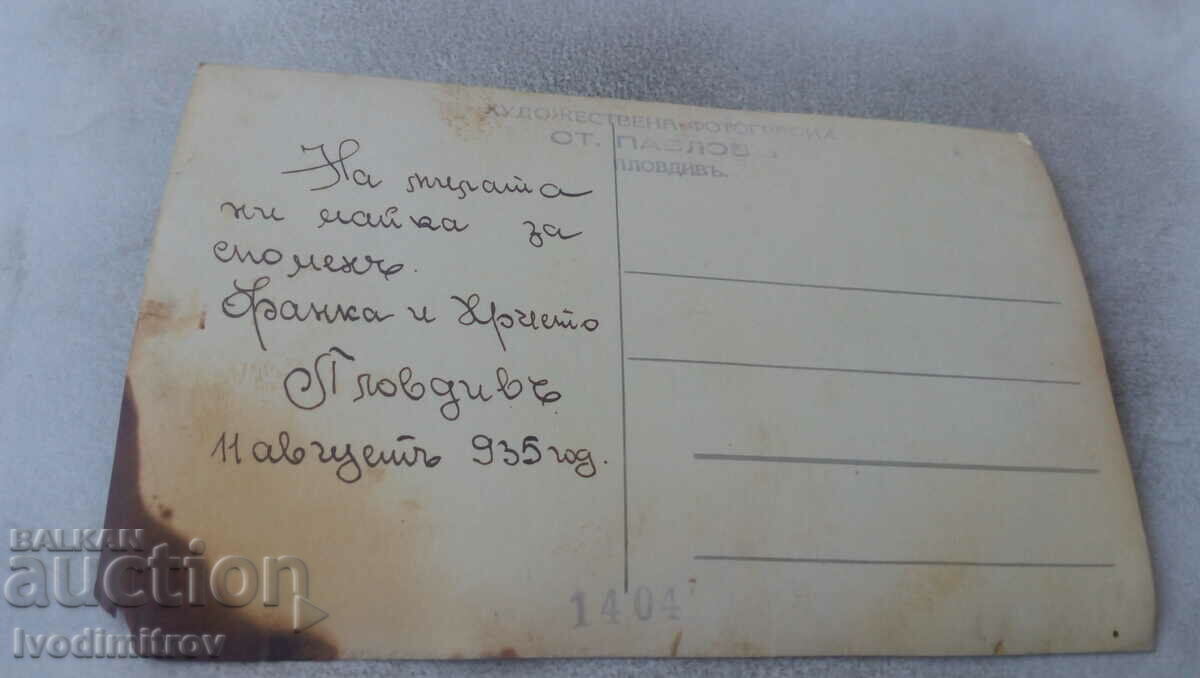 ХУДОЖЕСТВЕНА ФОТОГРАФИЯ
СТ. ПАВЛОВ
ПЛОВДИВЪ.
На милата
ни майка за
споменъ.
Фанка и Христо
Пловдивъ
11 августъ 935 год.
1404
BALKAN
auction
Ivodimitrov